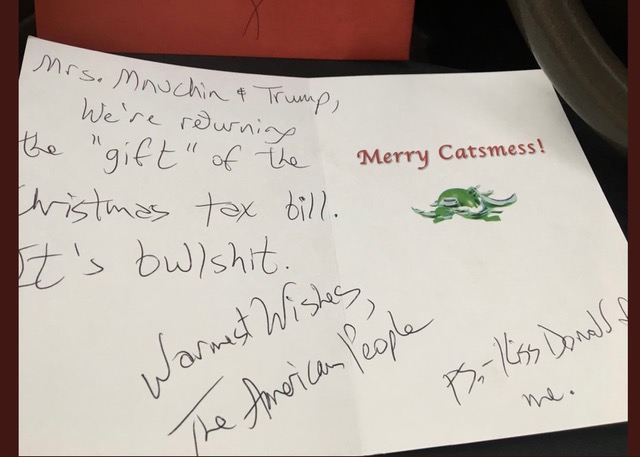 Mrs. Mnuchin & Trump,
We're returning
the "gift" of the
Christmas tax bill.
It's bullshit.
Warmest Wishes,
The American People
Merry Catsmess!
Ps.-Kiss Donald
me.